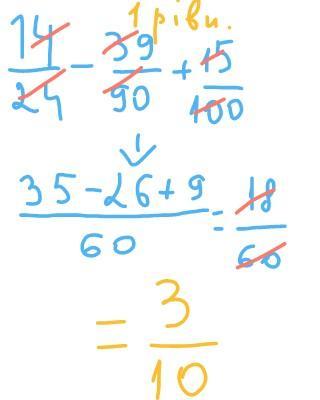 1 рівн.
14/24 - 39/90 + 15/100
↓
(35-26+9)/60 = 18/60
= 3/10